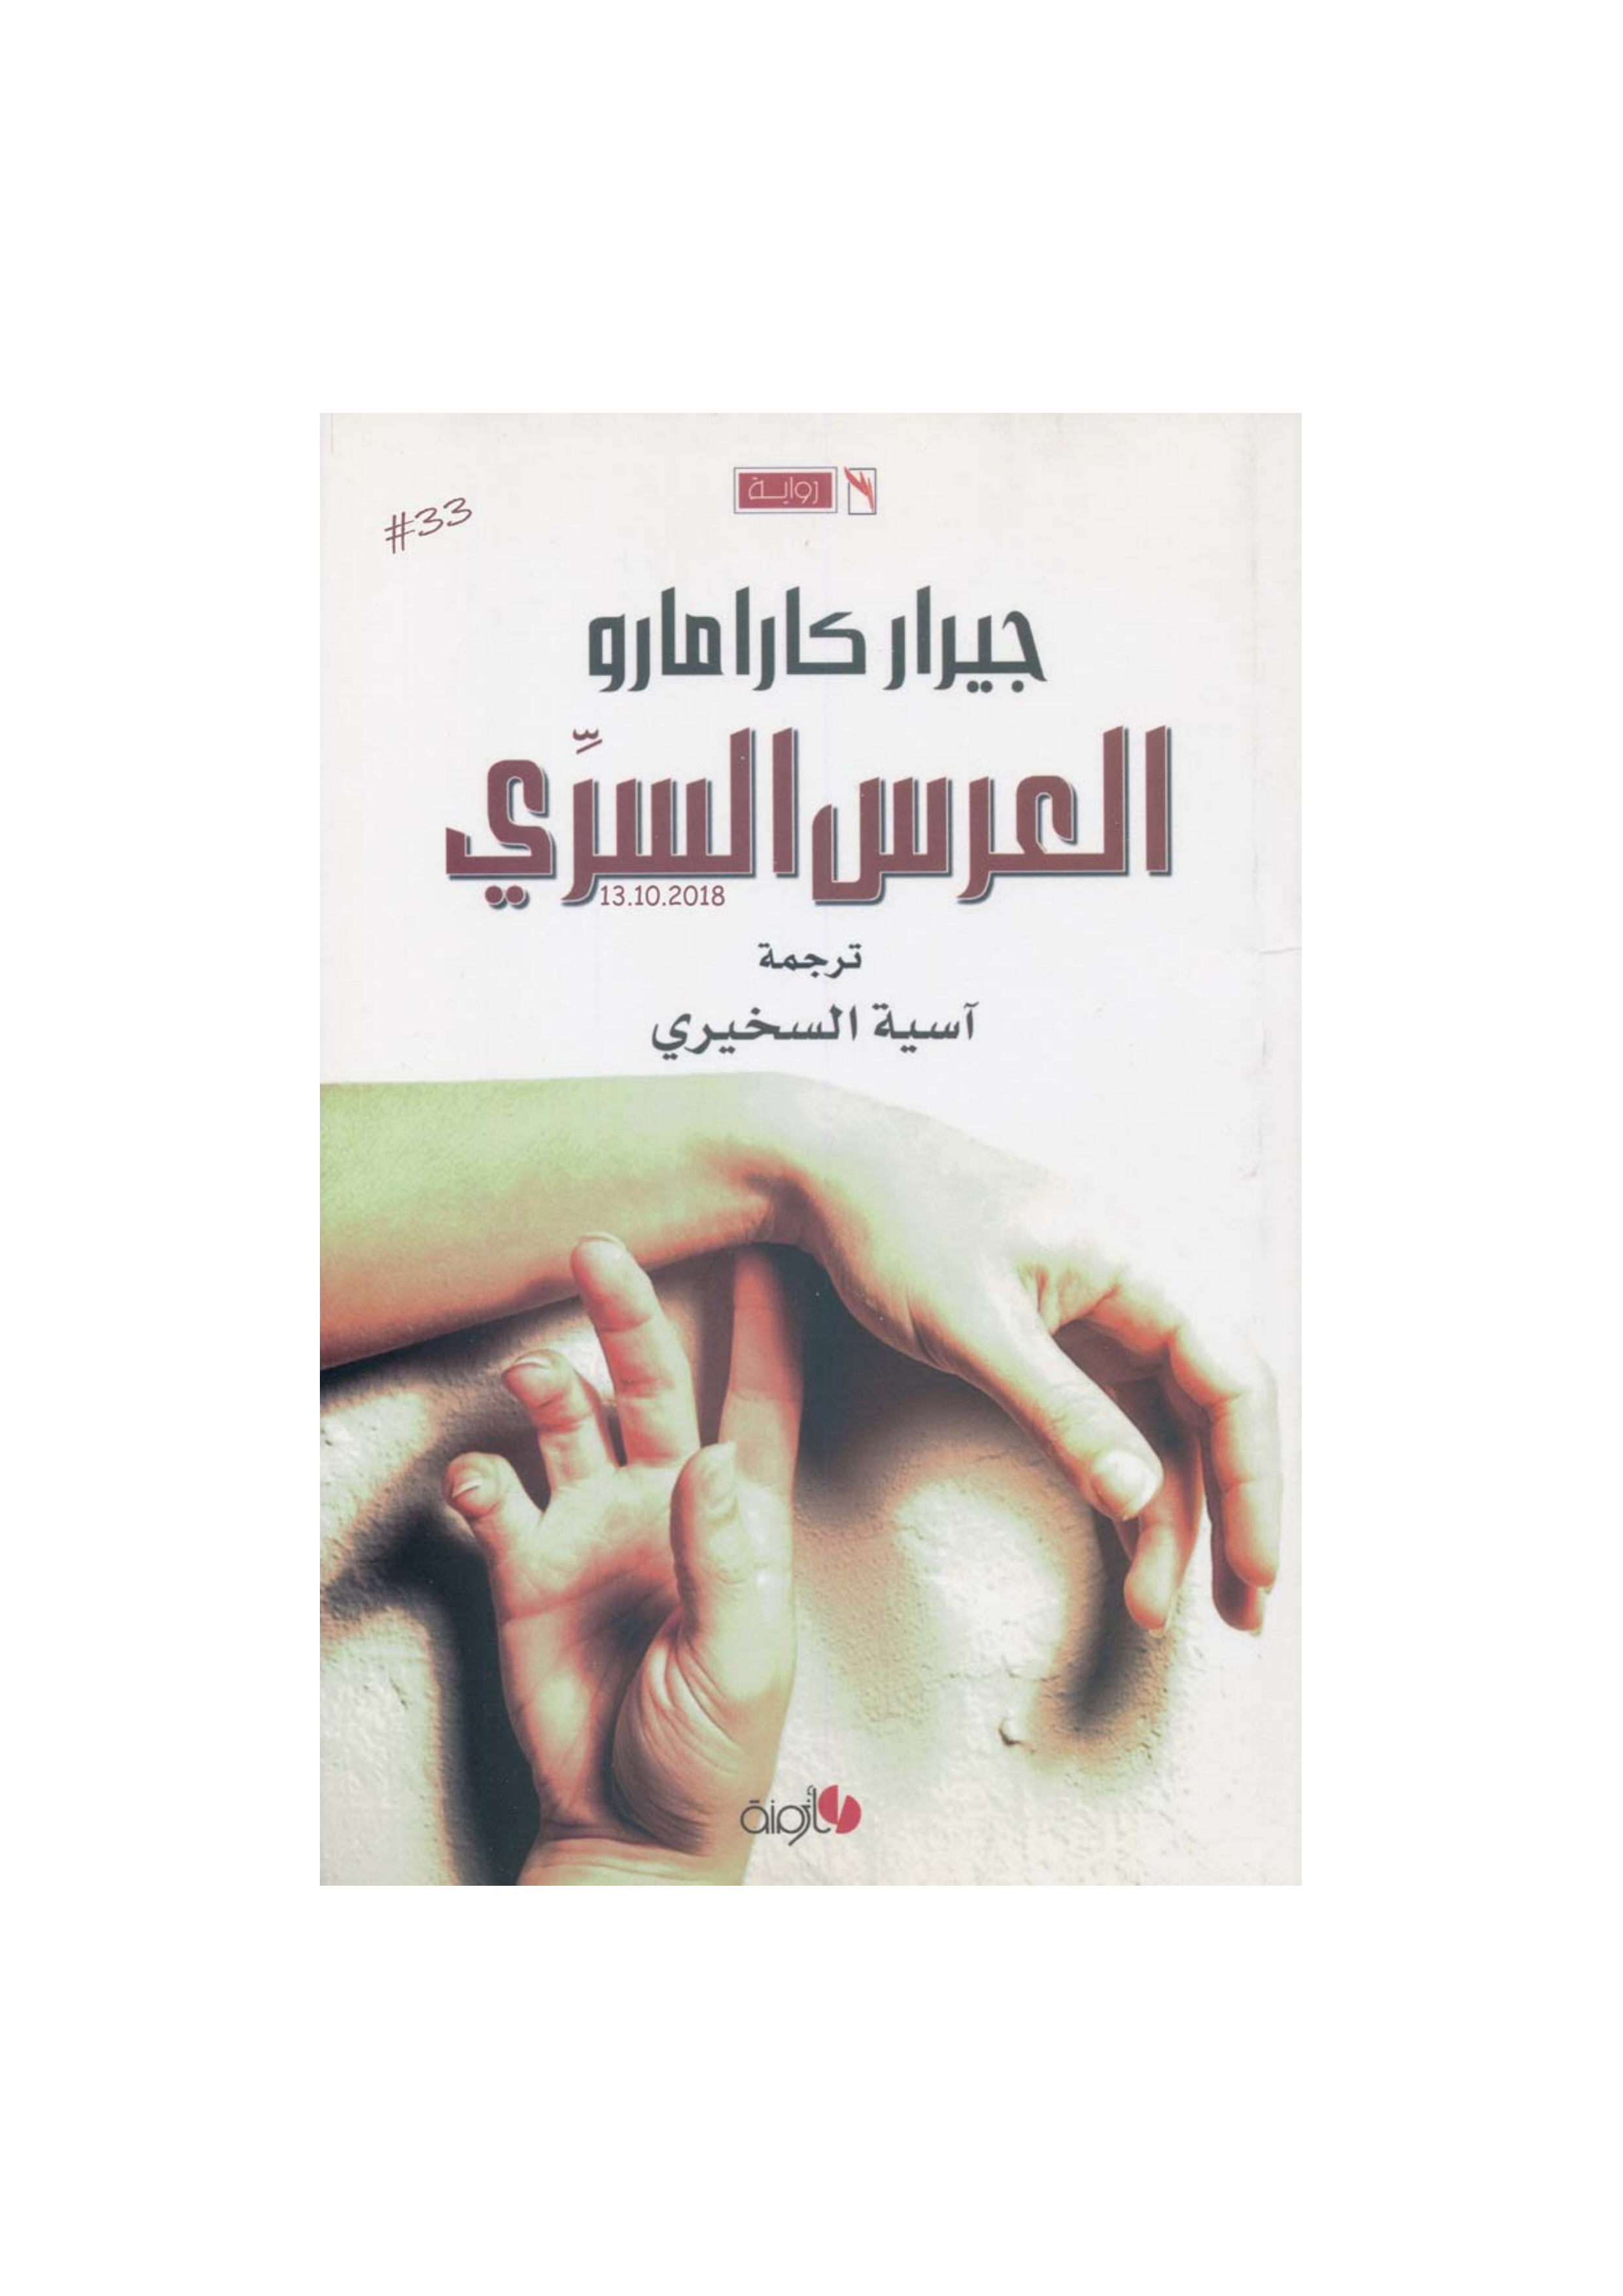 رواية
#33
جيرار كارامارو
العرس السرِّي
13.10.2018
ترجمة
آسية السخيري
أزمنة